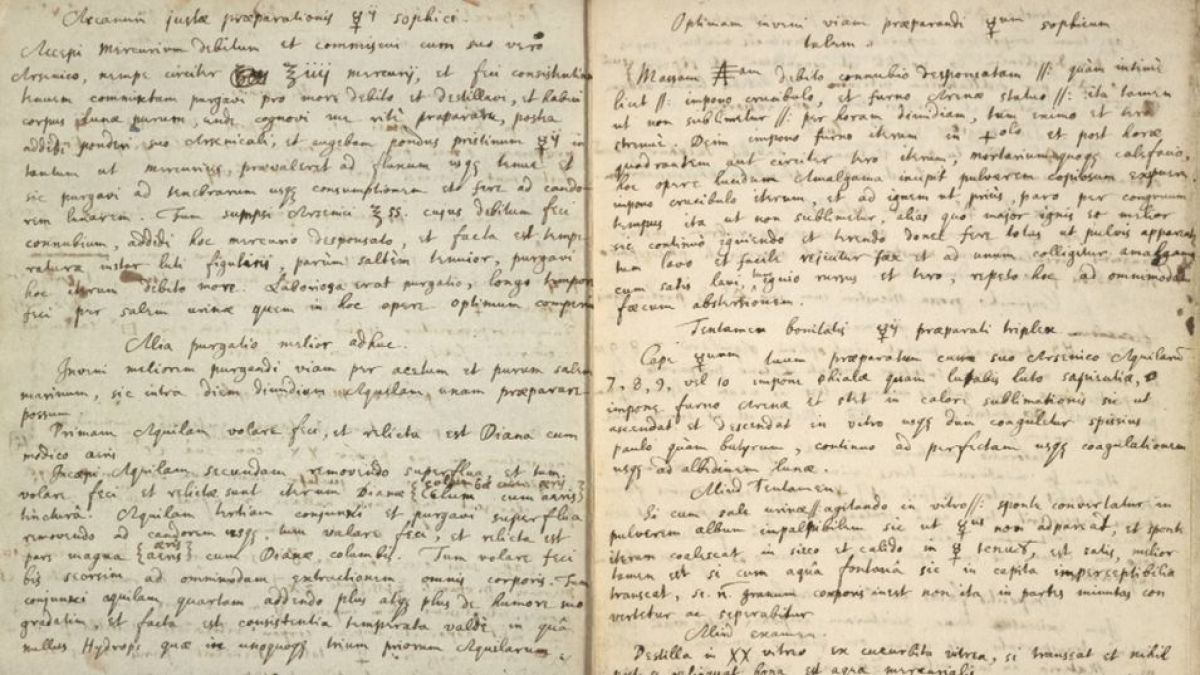 Arcanum justæ præparationis ☿ij sophici.
Accepi mercurium debitum et commiscui cum suo vero
Arsenico, nempe circiter ℥ iiii mercurij, et feci consistentiam
tenuem commixtam purgavi pro more debito et destillavi, et habui
corpus Lunæ purum, unde cognovi me ritè præparare, postea
addidi ponderi suo Arsenicali, et augebam pondus pristinum ☿ij in
tantum ut mercurius prævaleret ad fluxum usq3 tenuem et
sic purgavi ad tenebrarum usq3 consumptionem etc fere ad cando
rem lunarem. Tum sumpsi Arsenici ℥ ss. cujus debitum feci
connubium, addidi hoc mercurio desponsato, et facta est tempe
ratura instar luti figularis, parùm saltem tenuior, purgavi
hoc iterum debito more. Laboriosa erat purgatio, longo tempore
feci per salem urinæ quem in hoc opere optimum comperi
Alia purgatio melior adhuc.
Inveni meliorem purgandi viam per acetum et purum salem
marinum, sic intra diem dimidium Aquilam unam præparare
possum.
Primam Aquilam volare feci, et relicta est Diana cum
modico æris
Incæpi Aquilam secundam removendo superflua, et tum
volare feci et relictæ sunt iterum Dianæ cum aëris
tinctura. Aquilam tertiam conjunxi et purgavi superflua
removendo ad candorem usq3, tum volare feci, et relicta est
pars magna {aeris æris} cum Dianæ columbis. Tum volare feci
bis seorsim ad omnimodam extractionem omnis corporis. Tum
conjunxi aquilam quartam addendo plus atq3 plus de humore suo
gradatim, et facta est consistentia temperata valde in quâ
nullus Hydrops quæ in unoquoq3 trium priorum Aquilarum
Optimam inveni viam præparandi ☿um sophicum
talem.
Massam Aam debito connubio desponsatam //: quàm intimè
licet //: impono crucibulo, et furno Arenæ statuo //: ita tamen
ut non sublimetur //: per horam dimidiam, tum eximo et tero
strenuè. Dein impono furno iterum in et post horæ
quadrantem aut circiter tero iterum, mortariumq3 calefacio,
hoc opere lucidum Amalgama incipit pulverem copiosum expuere
impono crucibulo iterum, et ad ignem ut priùs, paro per congruum
tempus ita ut non sublimetur, alias quo major ignis eo melior
sic continuò igniendo et terendo donec fere totus ut pulvis appareat
tum lavo et facile rejicitur fæx et ad unum colligitur amalgama
cum satis lavi, tum ignio rursus et tero, repeto hoc ad omnimodam
fæcum abstersionem.
Tentamen bonitatis ☿ij præparati triplex
Cape ☿um tuum præparatum cum suo Arsenico Aquilarum
7, 8, 9, vel 10 impone phialæ quam lutabis luto sapientiæ,
impone furno Arenæ et stet in calore sublimationis sic ut
ascendat et descendat in vitro usq3 dum coaguletur spissius
paulo quàm butyrum, continuo ad perfectam usq3 coagulationem
usq3 ad albedinem lunæ.
Aliud Tentamen
Si cum sale urinæ //: agitando in vitro //: sponte convertatur in
pulverem album impalpibilem sic ut ☿us non appareat, et sponte
iterum coalescat in sicco et calido in ☿ tenuem, est satis, melior
tamen est si cum aquâ fontanâ sic in capita imperceptibilia
transeat, se. ñ. granum corporis inest non ita in partes minutas con
vertetur ac seperabitur
Aliud examen.
Destilla in vitro ex cucurbita vitrea, si transeat et nihil